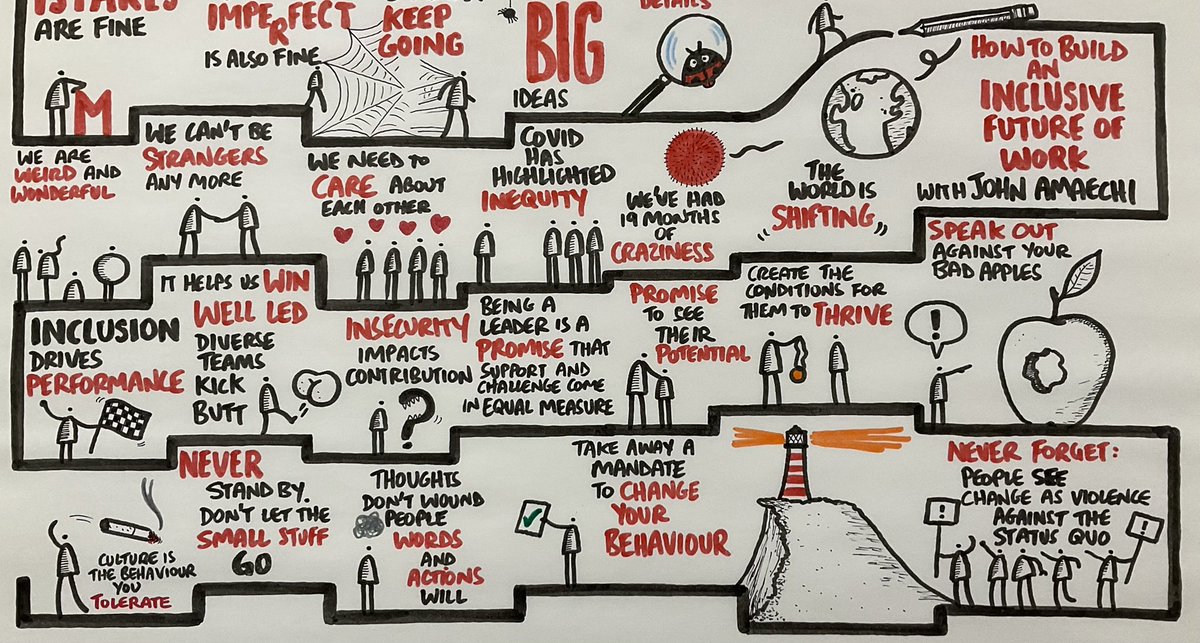 ISTAKES
ARE FINE
M
IMPERFECT
IS ALSO FINE
KEEP
GOING
BIG
IDEAS
DETAILS
HOW TO BUILD
AN
INCLUSIVE
FUTURE OF
WORK
WITH JOHN AMAECHI
THE
WORLD IS
SHIFTING
WE'VE HAD
19 MONTHS
OF
CRAZINESS
COVID
HAS
HIGHLIGHTED
INEQUITY
WE NEED TO
CARE ABOUT
EACH OTHER
WE CAN'T BE
STRANGERS
ANY MORE
WE ARE
WEIRD AND
WONDERFUL
INCLUSION
DRIVES
PERFORMANCE
IT HELPS US WIN
WELL LED
DIVERSE
TEAMS
KICK
BUTT
INSECURITY
IMPACTS
CONTRIBUTION
?
BEING A
LEADER IS A
PROMISE THAT
SUPPORT AND
CHALLENGE COME
IN EQUAL MEASURE
PROMISE
TO SEE
THEIR
POTENTIAL
CREATE THE
CONDITIONS FOR
THEM TO THRIVE
SPEAK OUT
AGAINST YOUR
BAD APPLES
!
NEVER FORGET:
PEOPLE SEE
CHANGE AS VIOLENCE
AGAINST THE
STATUS QUO
!
!
TAKE AWAY A
MANDATE
TO CHANGE
YOUR
BEHAVIOUR
THOUGHTS
DON'T WOUND
PEOPLE
WORDS
AND
ACTIONS
WILL
NEVER
STAND BY.
DON'T LET THE
SMALL STUFF
GO
CULTURE IS
THE BEHAVIOUR
YOU
TOLERATE